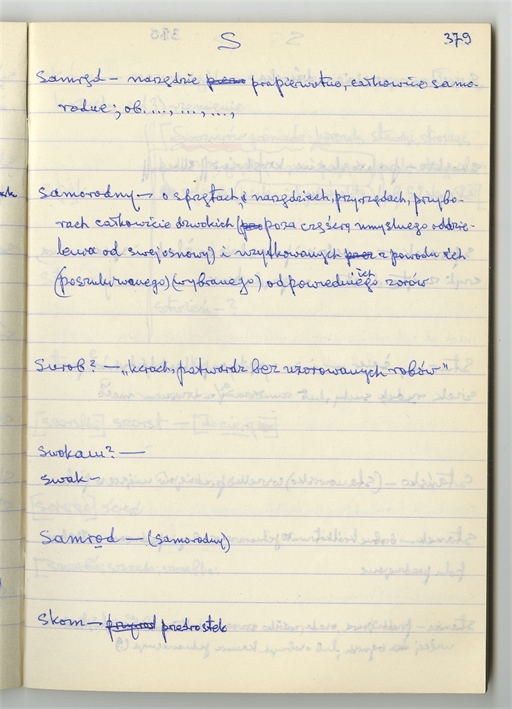 S 379
Samręd – narzędzie prapierwotne, całkowicie samo-
rodne; ob. ..., ..., ...,
Samorodny – o sprzętach, narzędziach, przyrządach, przybo-
rach całkowicie (poza częścią umyślnego oddzie-
lewa od swojosnowy) i użytkowanych z powodu ich
(poszukiwanego) (wybranego) odpowiednich zorów
Surob? – „kerach, petwardz bez uzorowanych robów"
Swokam? –
swak –
Samrod – (samorodny)
Skom – przedrostek